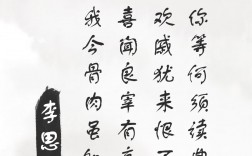 你等何须读典
欢戚犹来恨不
喜闻良宰有言
我今骨肉虽如
李思